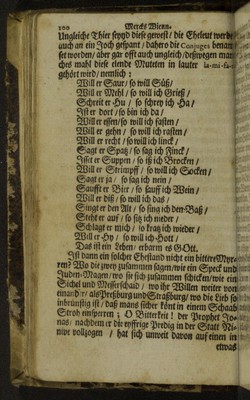 200 Mercks Wienn.
Ungleiche Thier seynd diese gewest / die Eheleut werden
auch an ein Joch gespant / dahero die Conjuges benam-
set worden / aber gar offt auch ungleich / deßwegen man-
ches mahl diese elende Muteten in lauter la-mi-fa-
gehört wird / nemlich :
Will er Saur / so will Süß /
Will er Mehl / so will ich Grieß /
Schreit er Hu / so schrey ich Ha /
Ist er dort / so bin ich da /
Will er essen / so will ich fasten /
Will er gehn / so will ich rasten /
Will er recht / so will ich linck /
Sagt er Spatz / so sag ich Finck /
Isset er Suppen / so iß ich Brocken /
Will er Strimpff / so will ich Socken /
Sagt er ja / so sag ich nein /
Saufft er Bier / so sauff ich Wein /
Will er diß / so will ich das /
Singt er den Alt / so sing ich den Baß /
Steht er auf / so sitz ich nieder /
Schlägt er mich / so krag ich wieder /
Will er Hy / so will ich Hott /
Das ist ein Leben / erbarm es GOtt.
Ist dann ein solcher Ehestand nicht ein bitterer Myr-
ren? Wo die zwey zusammen sagen / wie ein Speck und
Juden-Magen / wo sie sich zusammen schicken / wie ein
Sichel und Messerschaid / wo ihr Willen weiter von
einander / als Preßburg und Straßburg / wo die Lieb so
inbrünstig ist / daß mans sicher könt in einem Schaab
Stroh einsperren ; O Bitterkeit ! der Prophet Jo-
nas / nachdem er die eyffrige Predig in der Statt Ni-
nive vollzogen / hat sich unweit davon auf einen
etwas